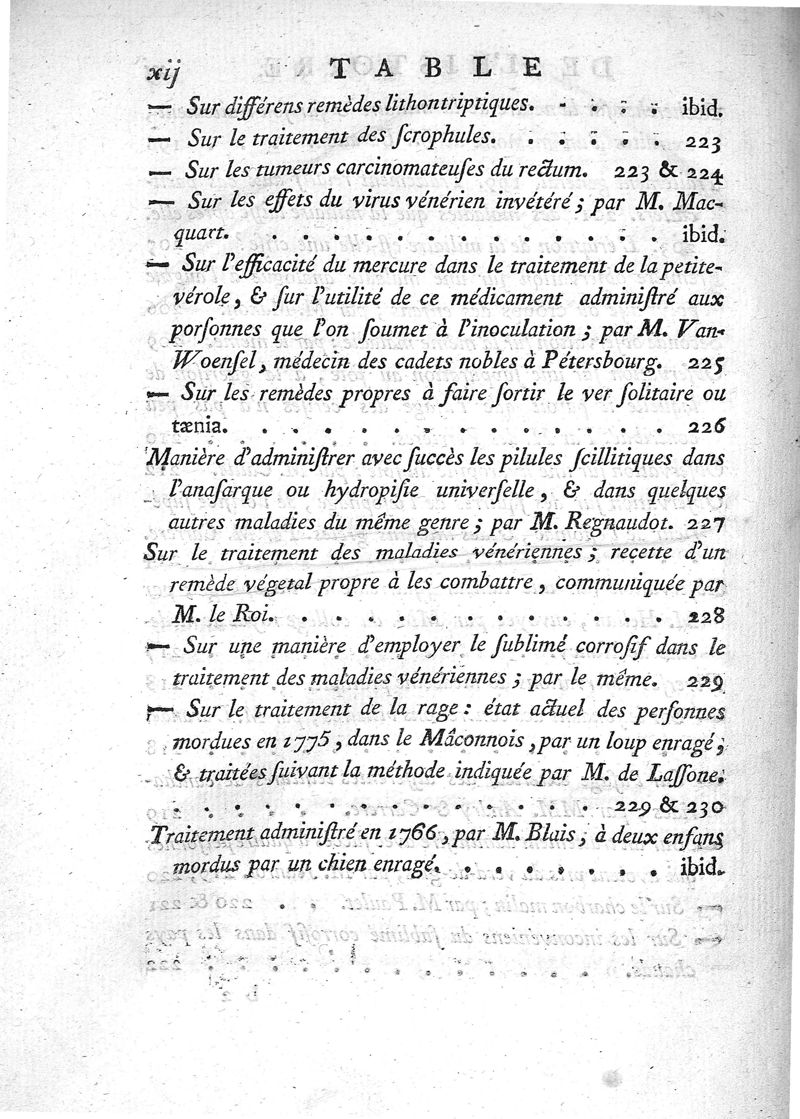 xij T A B L E
— Sur différens remèdes lithontriptiques. . . . . ibid.
— Sur le traitement des ſcrophules. . . . . . 223
— Sur les tumeurs carcinomateuſes du rectum. 223 & 224
— Sur les effets du virus vénérien invétéré ; par M. Mac-
quart. . . . . . . . . . . . . . ibid.
— Sur l'efficacité du mercure dans le traitement de la petite-
vérole, & ſur l'utilité de ce médicament adminiſtré aux
porſonnes que l'on ſoumet à l'inoculation ; par M. Van-
Woenſel, médecin des cadets nobles à Pétersbourg. 225
— Sur les remèdes propres à faire ſortir le ver ſolitaire ou
tænia. . . . . . . . . . . . . . 226
Manière d'adminiſtrer avec ſuccès les pilules ſcillitiques dans
l'anaſarque ou hydropiſie univerſelle, & dans quelques
autres maladies du même genre ; par M. Regnaudot. 227
Sur le traitement des maladies vénériennes ; recette d'un
remède végetal propre à les combattre, communiquée par
M. le Roi. . . . . . . . . . . . . 228
— Sur une manière d'employer le ſublimé corroſif dans le
traitement des maladies vénériennes ; par le même. 229
— Sur le traitement de la rage : état actuel des perſonnes
mordues en 1775, dans le Mâconnois, par un loup enragé,
& traitées ſuivant la méthode indiquée par M. de Laſſone.
. . . . . . . . . . . . . 229 & 230
Traitement adminiſtré en 1766, par M. Blais, à deux enfans
mordus par un chien enragé. . . . . . . . ibid.